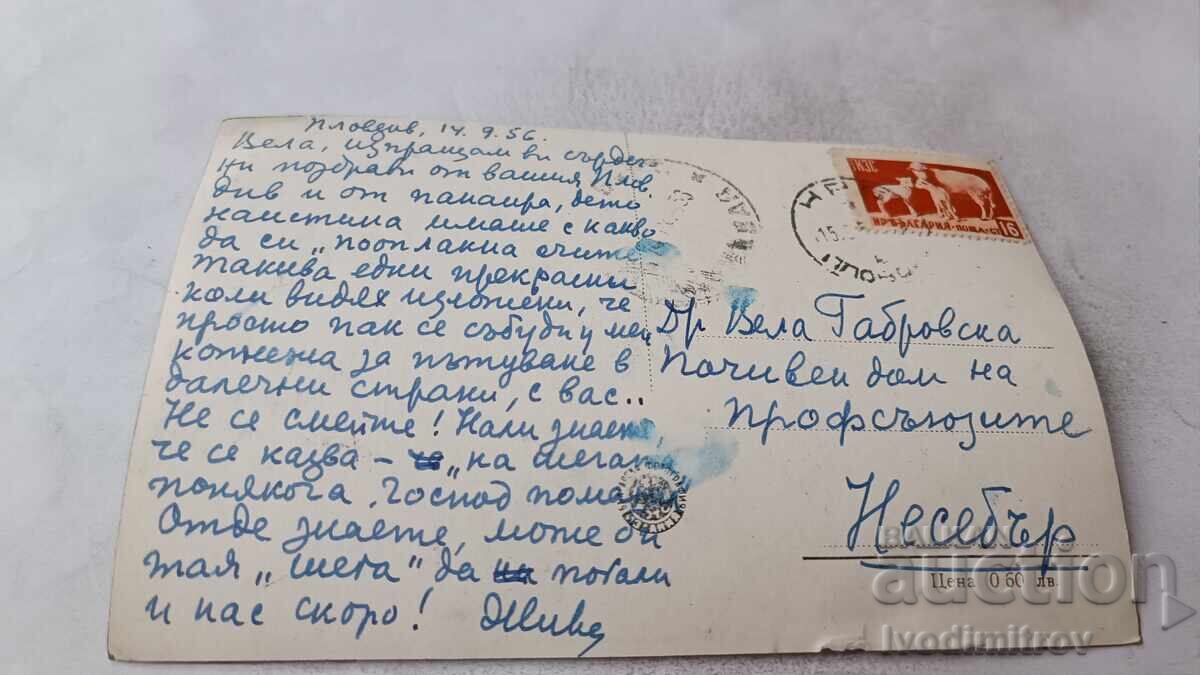 Пловдив, 14.9.56.
Вела, изпращам ви сърдеч
ни поздрави от вашия Плов
див и от панаира, дето
наистина имаше с какво
да си "пооплакна очите
такива едни прекрасни
коли видях изложени, че
просто пак се събуди у мен
копнежа за пътуване в
далечни страни, с вас..
Не се смейте! Нали знаете,
че се казва - "на шега
понякога, Господ помага"
Отде знаете, може би
тая "шега" да погали
и нас скоро!
Др Вела Габровска
Почивен дом на
Профсъюзите
Несебър
Цена 0·60 лв.
ТКЗС
НР БЪЛГАРИЯ · ПОЩА · СТ
16
auction
Ivodimitrov